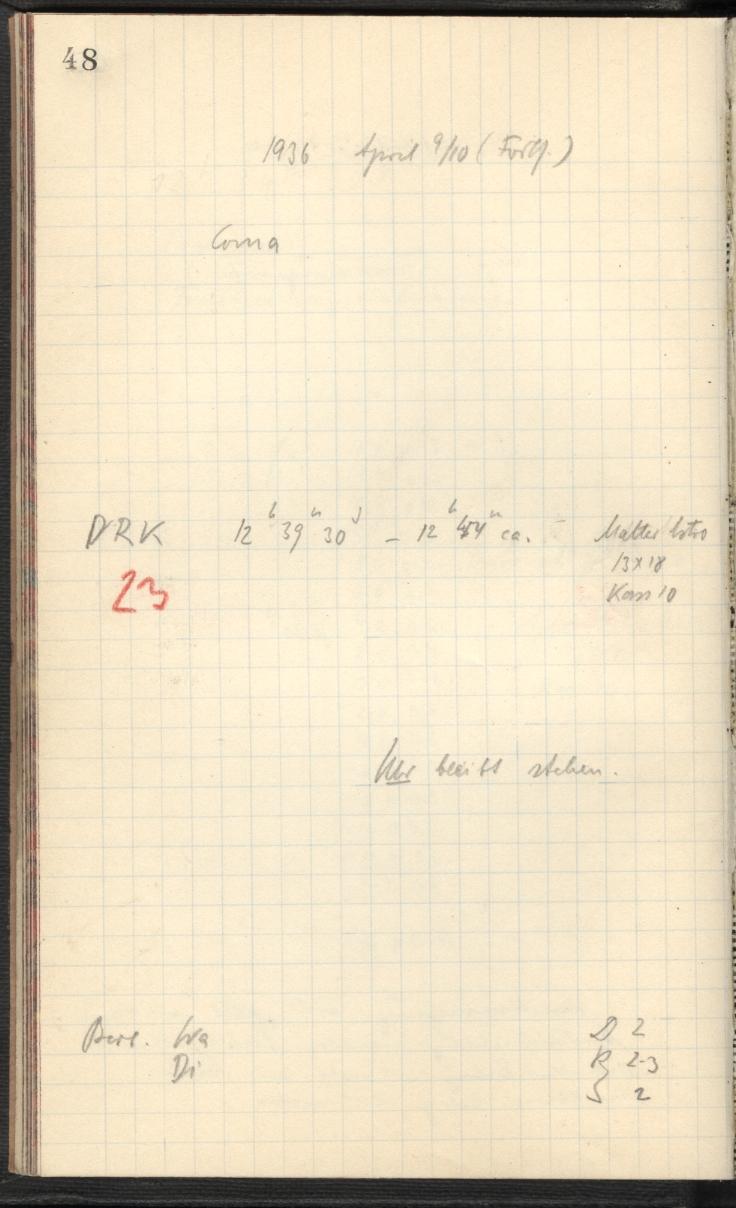 48
1936 April 9/10 (Forts.)
Coma
DRK 12h 39m 30s – 12h 44m ca. Matter Astro
13x18
Kass 10
23
Uhr bleibt stehen.
Beob. Wa D 2
Di R 2-3
S 2